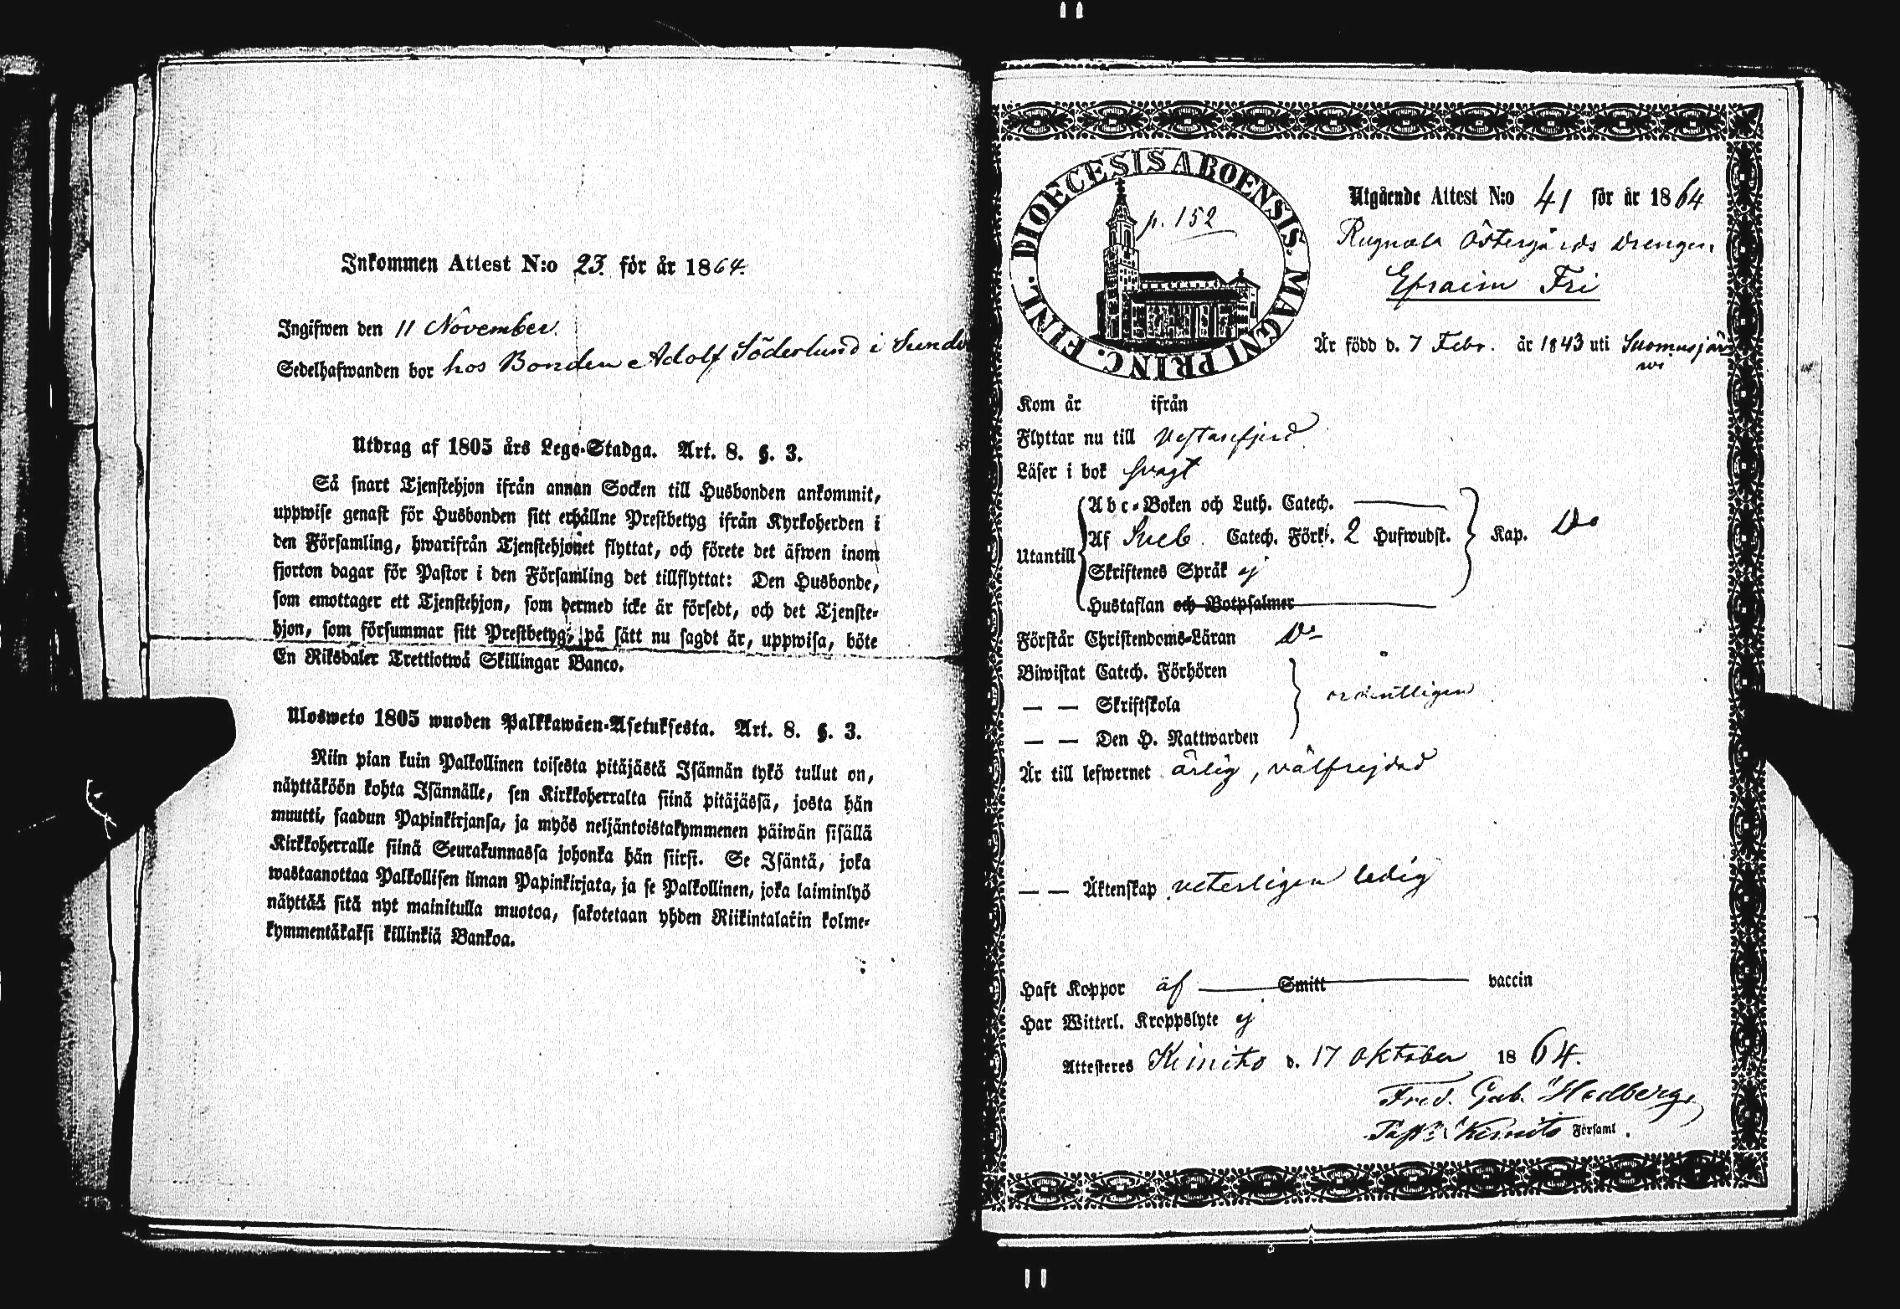 Inkommen Attest N:o 23 för år 1864.
Ingifwen den 11 November.
Sedelhafwanden bor hos Bonden Adolf Söderlund i
Utdrag af 1805 års Lego-Stadga. Art. 8. §. 3.
Så snart Tjenstehjon ifrån annan Socken till Husbonden ankommit,
uppwise genast för Husbonden sitt erhållne Prestbetyg ifrån Kyrkoherden i
den Församling, hwarifrån Tjenstehjonet flyttat, och förete det äfwen inom
fjorton dagar för Pastor i den Församling det tillflyttat: Den Husbonde,
som emottager ett Tjenstehjon, som hermed icke är försedt, och det Tjenste-
hjon, som försummar sitt Prestbetyg, på sätt nu sagdt är, uppwisa, böte
En Riksdaler Trettiotwå Skillingar Banco.
Ulosweto 1805 wuoden Palkkawäen-Asetuksesta. Art. 8. §. 3.
Niin pian kuin Palkollinen toisesta pitäjästä Isännän tykö tullut on,
näyttäköön kohta Isännälle, sen Kirkkoherralta siinä pitäjässä, josta hän
muutti, saadun Papinkirjansa, ja myös neljäntoistakymmenen päiwän sisällä
Kirkkoherralle siinä Seurakunnassa johonka hän siirsi. Se Isäntä, joka
wastaanottaa Palkollisen ilman Papinkirjata, ja se Palkollinen, joka laiminlyö
näyttää sitä nyt mainitulla muotoa, sakotetaan yhden Riikintalarin kolme-
kymmentäkaksi killinkiä Bankoa.
DIOECESIS ABOENSIS. MAGNI PRINC. FINL.
p. 152
Utgående Attest N:o 41 för år 1864
Rugnola Östergårds drengen
Efraim Fri
Är född d. 7 Febr. år 1843 uti Suomusjär
wi
Kom år ifrån
Flyttar nu till Vestanfjerd
Läser i bok svagt
Utantill
A b c-Boken och Luth. Catech.
Af Sveb. Catech. Förkl. 2 Hufwudst. Kap. Do
Skriftenes Språk ej
Hustaflan och Botpsalmer
Förstår Christendoms-Läran Do
Biwistat Catech. Förhören
— — Skriftskola ordentligen
— — Den H. Nattwarden
Är till lefwernet ärlig, välfrejdad
— — Äktenskap veterligen ledig
Haft Koppor af Smitt vaccin
Har Witterl. Kroppslyte ej
Attesteres Kimito d. 17 Oktober 1864.
Fred. Gab. Hedberg,
Past. i Kimito Församl.